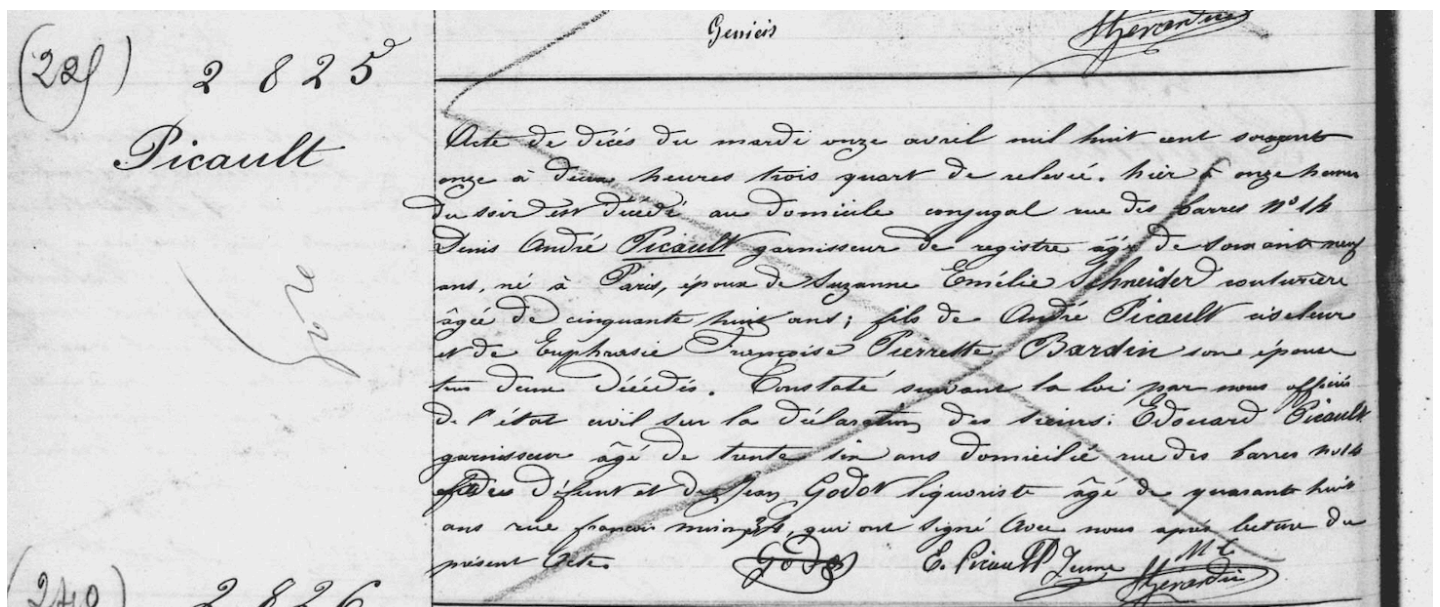 Gervais
(239) 2825
Picault
Acte de décès du mardi onze avril mil huit cent soixante
onze à deux heures trois quart de relevée. hier à onze heures
du soir est décédé au domicile conjugal rue des barres nº 14
Denis André Picault garnisseur de registre âgé de soixante neuf
ans, né à Paris, époux de Suzanne Emélie Schneider couturière
âgée de cinquante huit ans; fils de André Picault ciseleur
et de Euphrasie Françoise Pierrette Bardin son épouse
tous deux décédés. Constaté suivant la loi par nous officier
de l'état civil sur la déclaration des sieurs: Edouard Picault
garnisseur âgé de trente six ans domicilié rue des barres nº 14
fils du défunt et de Jean Godot liquoriste âgé de quarante huit
ans rue françois miron qui ont signé avec nous après lecture du
présent Acte.
Godot E. Picault Jeune
(240) 2826